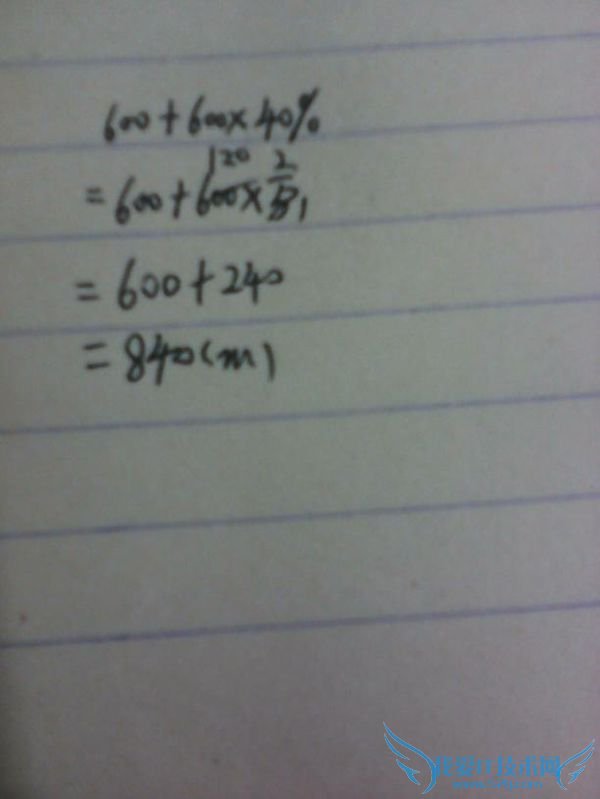 600+600×40%
=600+600×2/5
120 1
=600+240
=840(m)